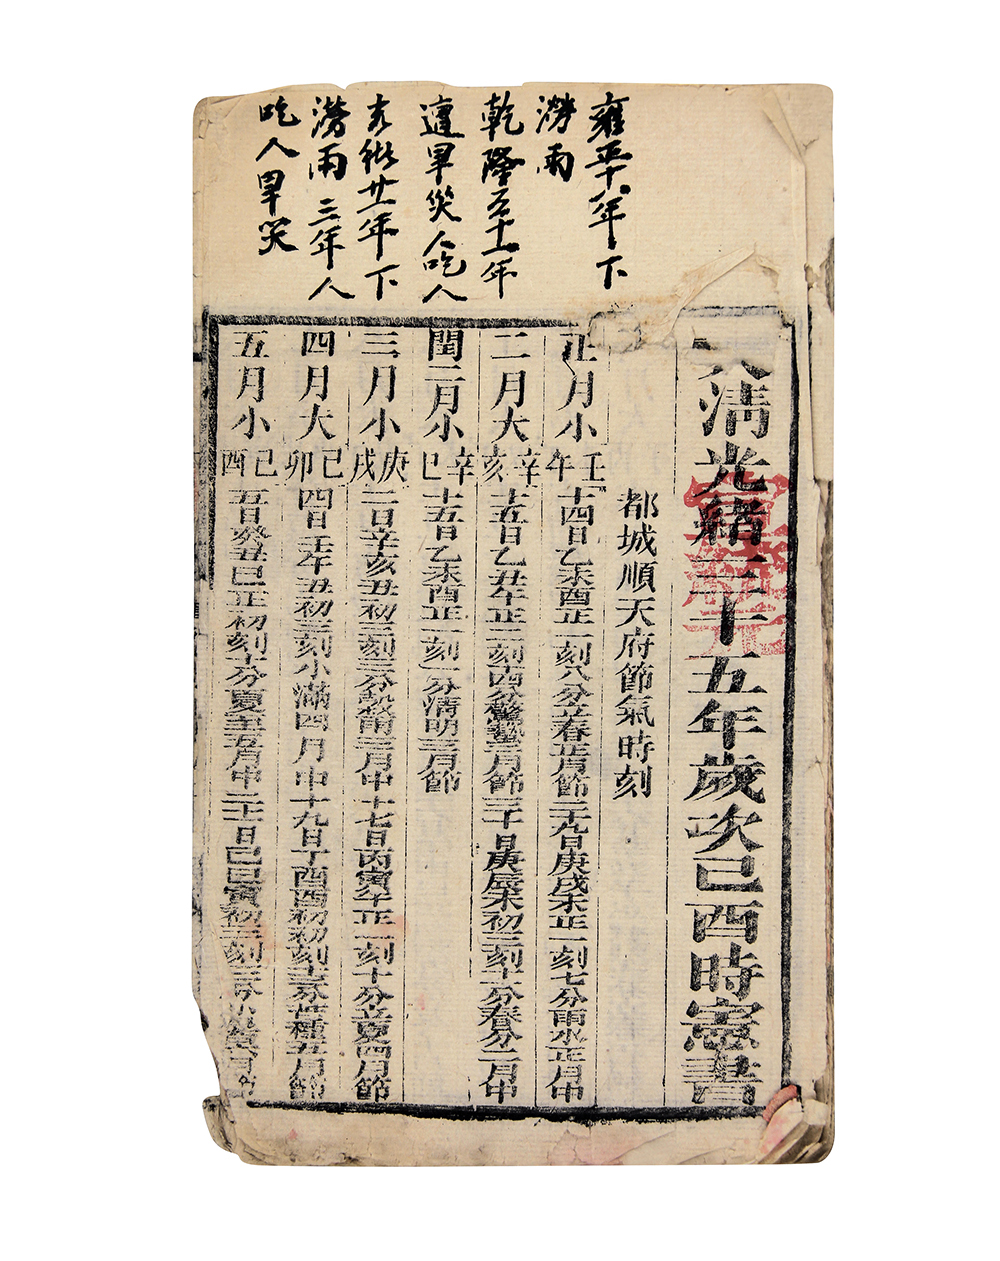 雍正十年下
澇雨
乾隆五十一年
遭旱災人吃人
光緒廿一年下
澇雨三年人
吃人旱災
大清光緒三十五年歲次己酉時憲書
都城順天府節氣時刻
正月小壬午十四日乙未酉正一刻八分立春正月節二十九日庚戌未正一刻七分雨水正月中
二月大辛亥十五日乙丑午正二刻四分驚蟄二月節三十日庚辰未初二刻十一分春分二月中
閏二月小辛巳十五日乙未酉正一刻一分清明三月節
三月小庚戌二日辛亥丑初三刻三分穀雨三月中十七日丙寅午正一刻十分立夏四月節
四月大己卯四日壬午丑初三刻小滿四月中十九日丁酉酉初初刻十三分芒種五月節
五月小己酉五日癸丑巳正初刻十分夏至五月中二十一日己巳寅初三刻三分小暑六月節